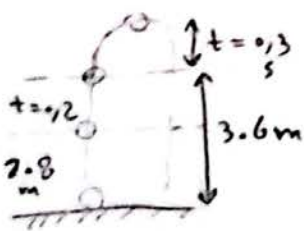 t = 0,3
s
t = 0,2
3.6 m
2.8
m